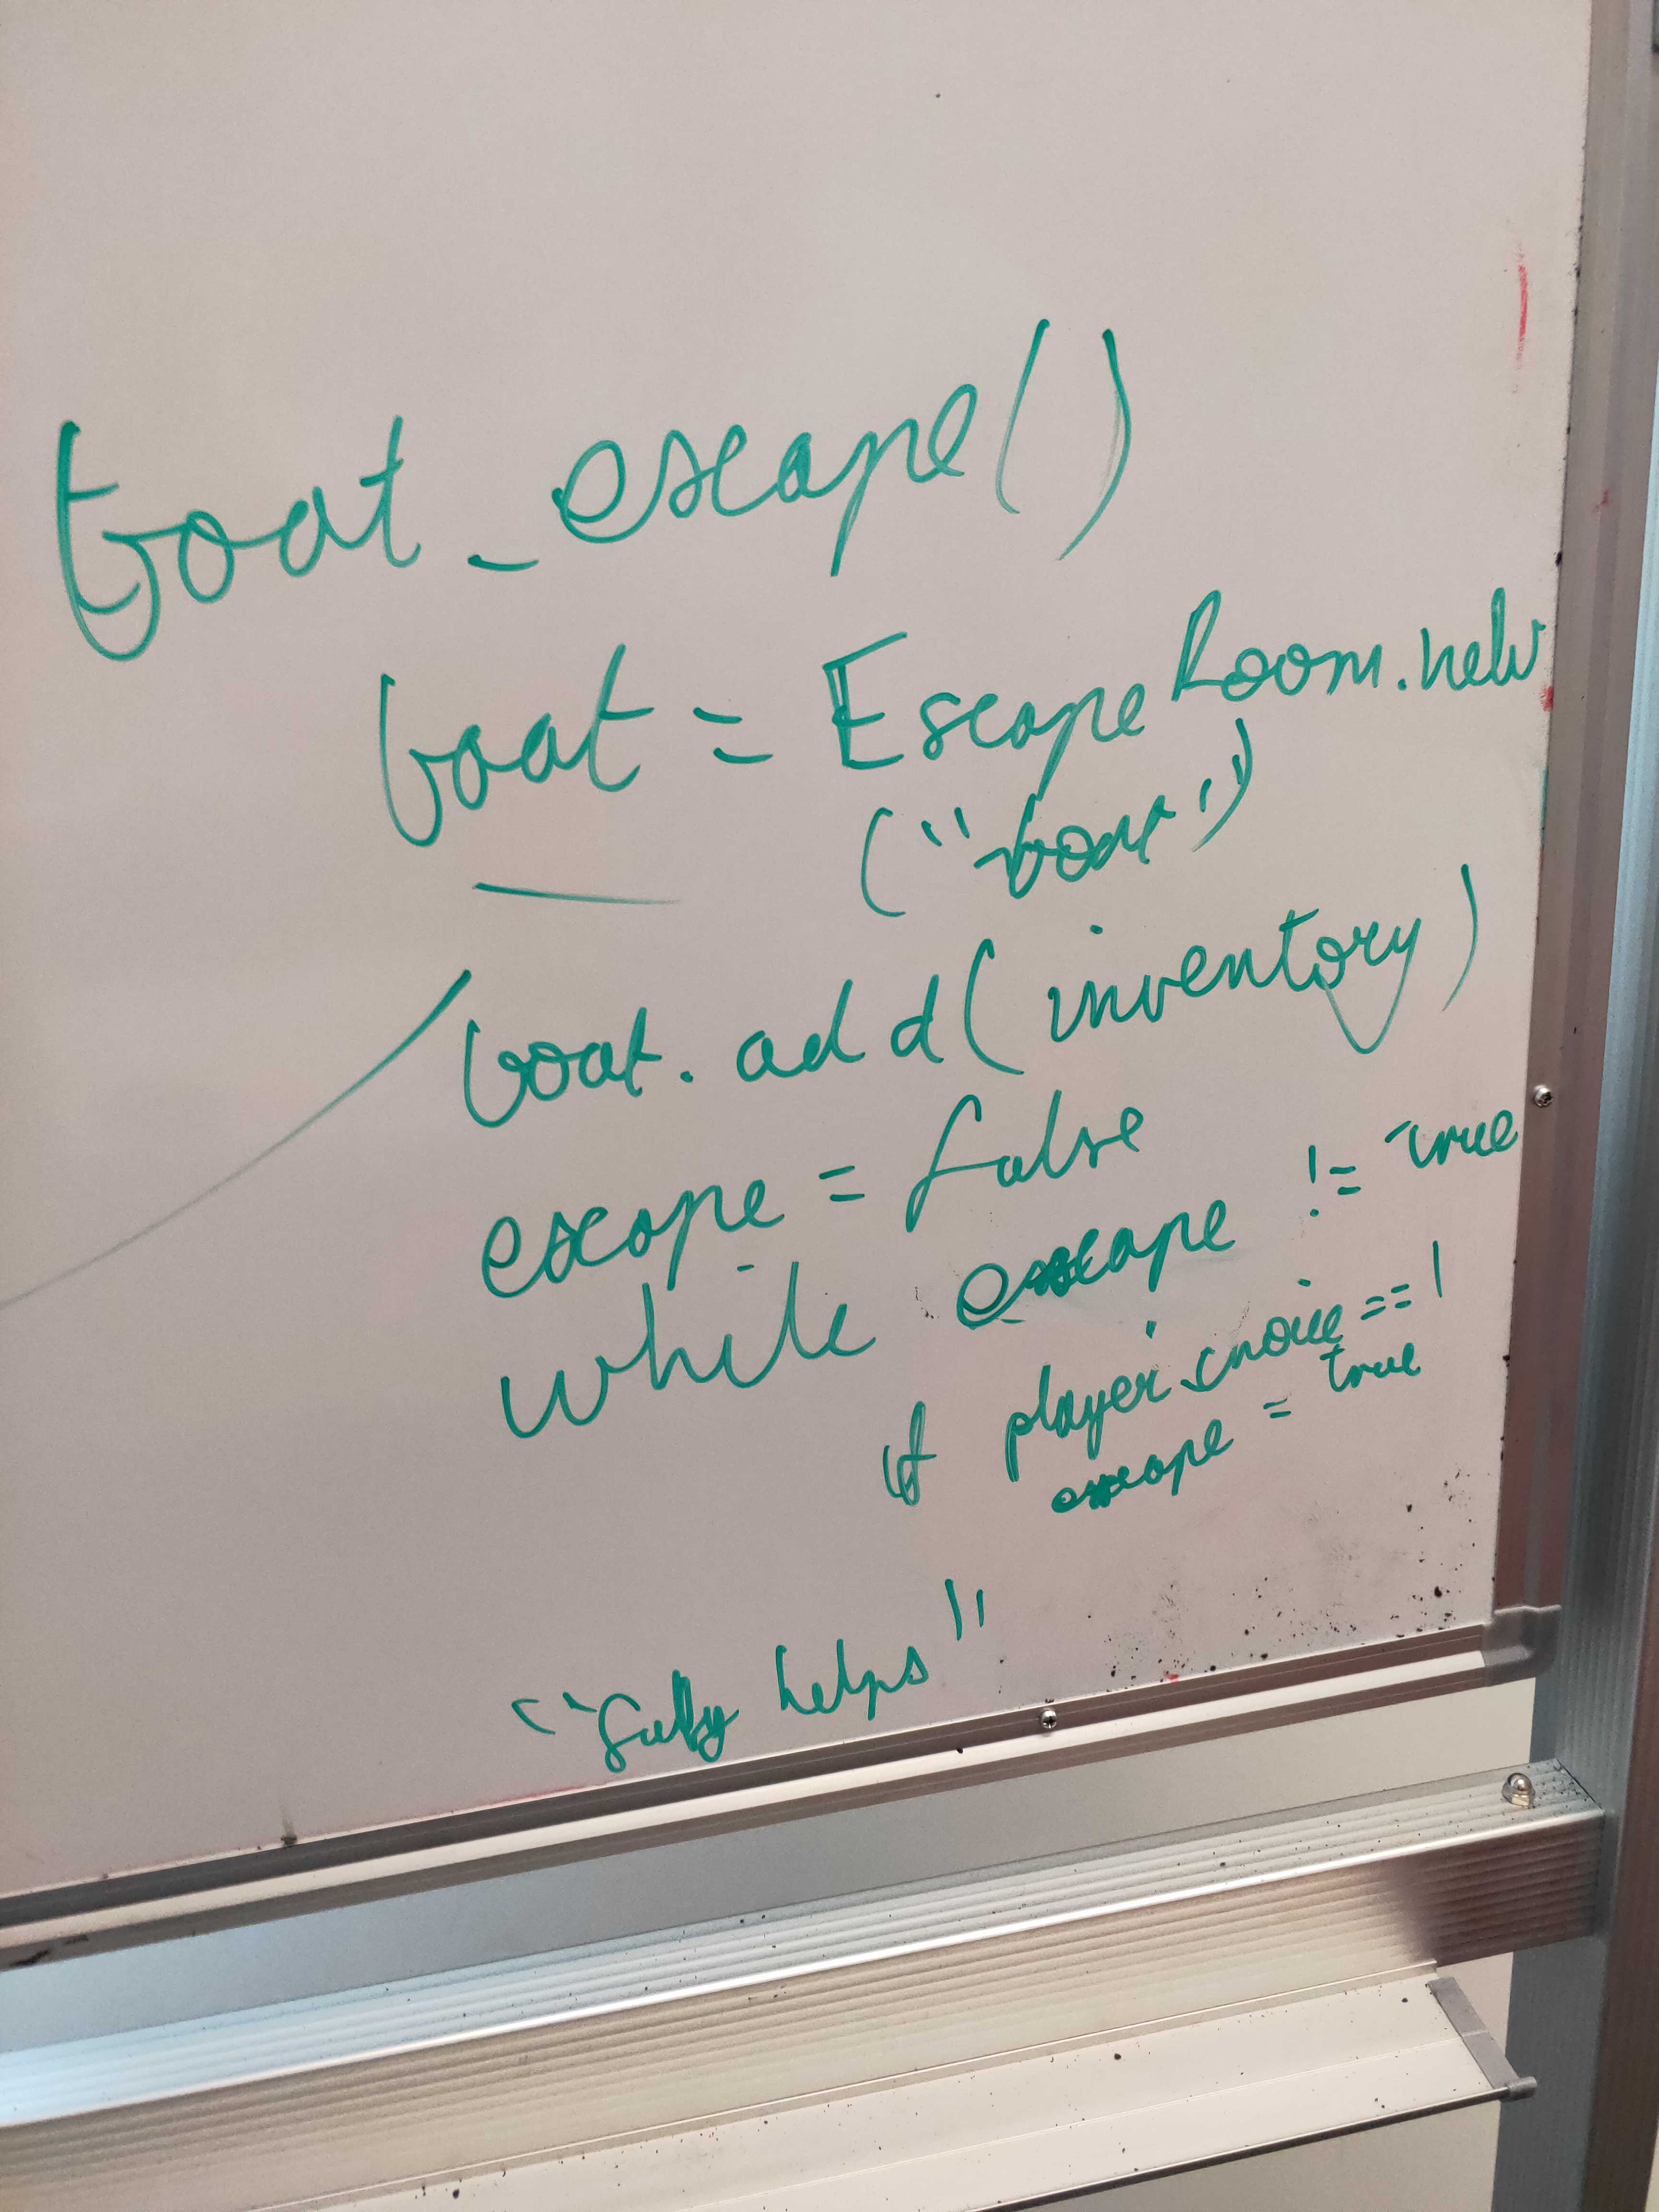 boat_escape()
boat = EscapeRoom.new
("boat")
boat.add(inventory)
escape = false
while escape != true
if player.choice == 1
escape = true
" helps"